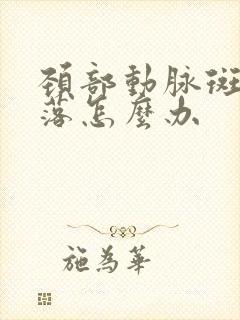 頸部動脉斑
落怎麼办
施為華